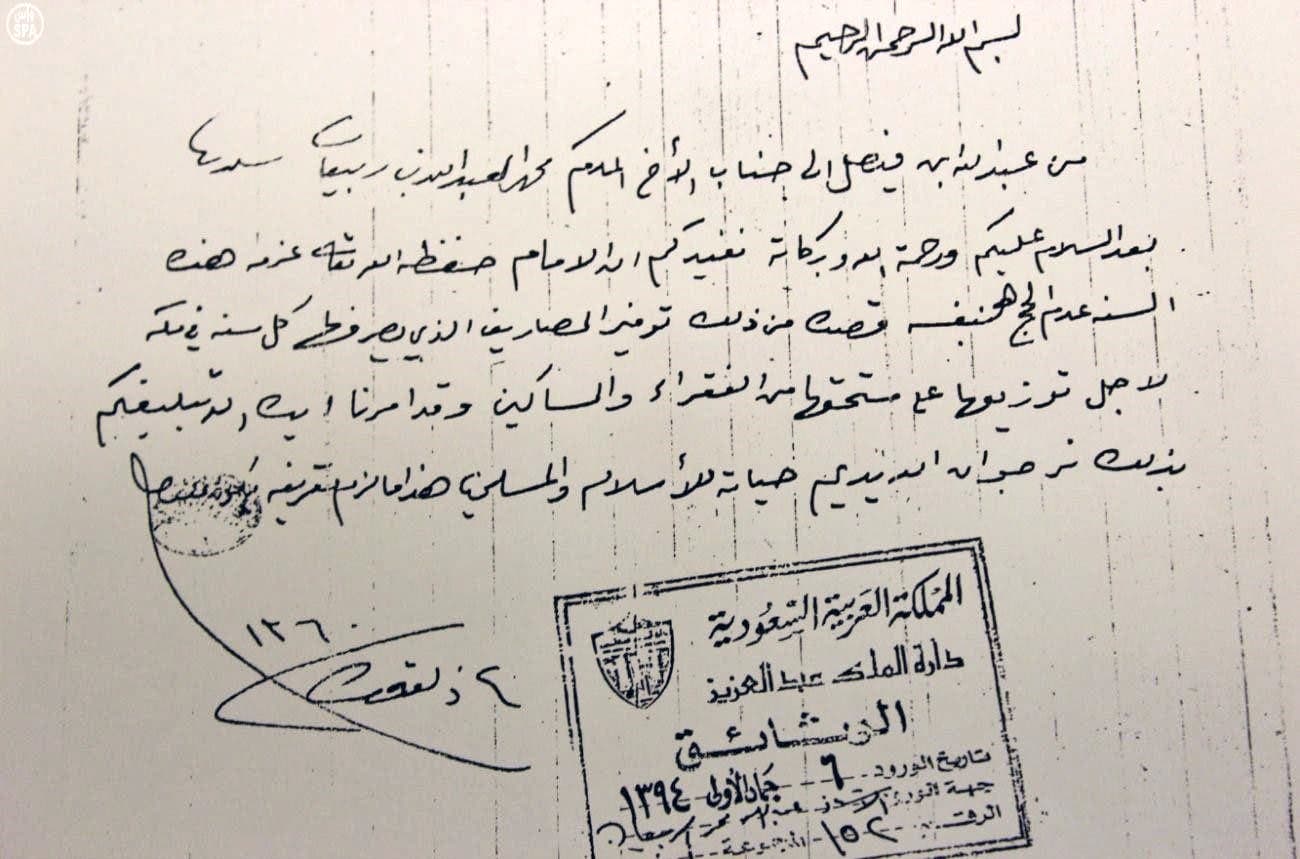 واس
SPA
بسم الله الرحمن الرحيم
من عبدالله ابن فيصل الى جناب الأخ المكرم محمد العبدالله بن ربيعان سلمه
بعد السلام عليكم ورحمة الله وبركاته نفيدكم ان الامام حفظه الله تعالى عزم هذه
السنه عدم الحج بنفسه قصده من ذلك توفير المصاريف الذي يصرفها كل سنه في مكه
لاجل توزيعها على مستحقها من الفقراء والمساكين وقد امرنا ايده الله تبليغكم
بذلك نرجو ان الله يديم حياته للأسلام والمسلمين هذا ما لزم تعريفه
١٣٦٠
٤ ذ لقعده
المملكة العربية السعودية
دارة الملك عبد العزيز
الوثائق
تاريخ الورود ٦ جماد الأولى ١٣٩٤
جهة الورود
الرقم ١٥٢ المجموعة